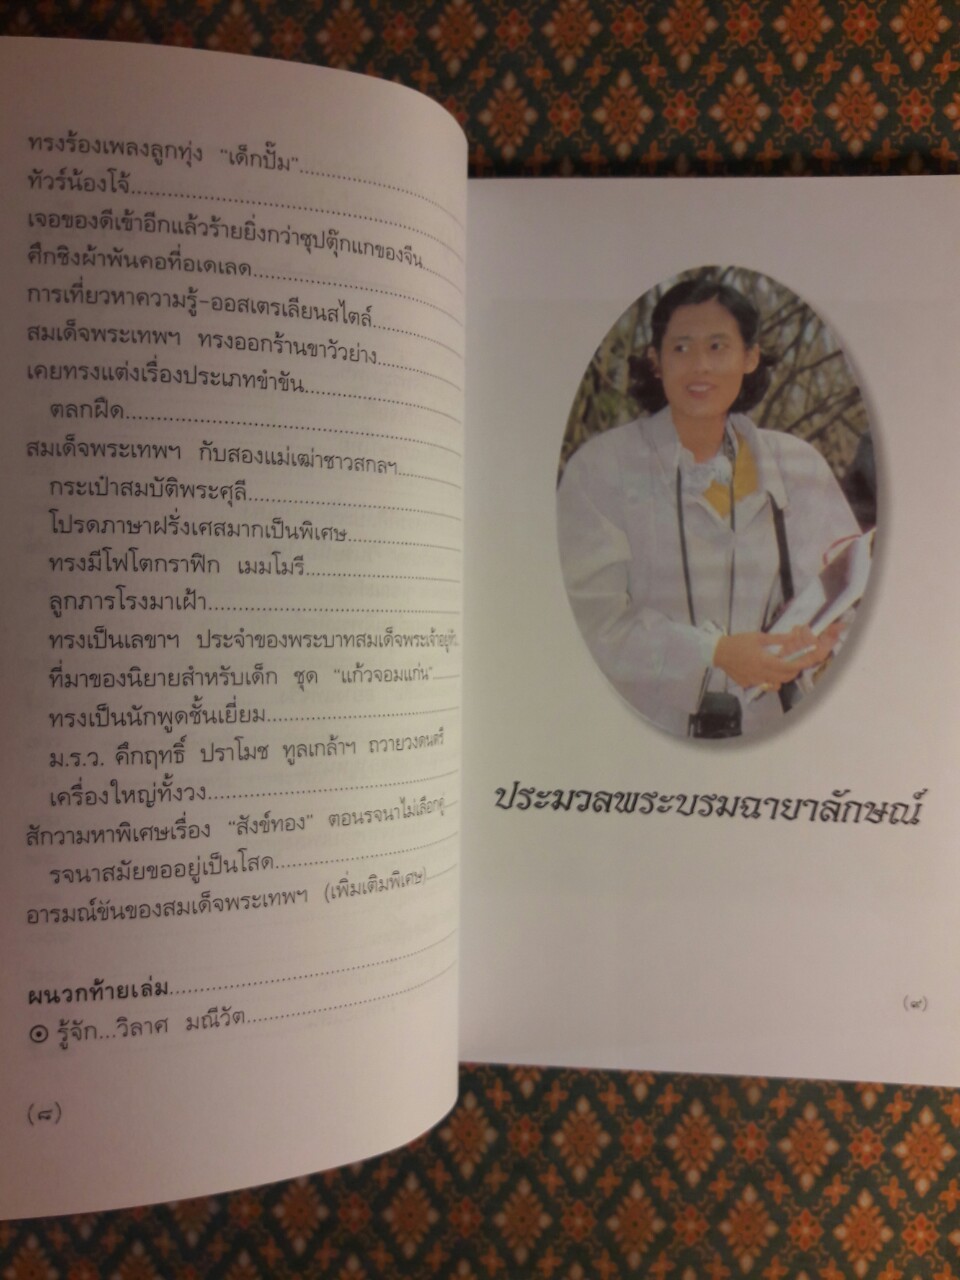 ทรงร้องเพลงลูกทุ่ง “เด็กปั๊ม”
ทัวร์น้องโจ้
เจอของดีเข้าอีกแล้วร้ายยิ่งกว่าซุปตุ๊กแกของจีน
ศึกชิงผ้าพันคอที่อเดเลด
การเที่ยวหาความรู้-ออสเตรเลียนสไตล์
สมเด็จพระเทพฯ ทรงออกร้านขาวัวย่าง
เคยทรงแต่งเรื่องประเภทขำขัน
ตลกฝืด
สมเด็จพระเทพฯ กับสองแม่เฒ่าชาวสกลฯ
กระเป๋าสมบัติพระศุลี
โปรดภาษาฝรั่งเศสมากเป็นพิเศษ
ทรงมีโฟโตกราฟิก เมมโมรี
ลูกภารโรงมาเฝ้า
ทรงเป็นเลขาฯ ประจำของพระบาทสมเด็จพระเจ้าอยู่หัว
ที่มาของนิยายสำหรับเด็ก ชุด “แก้วจอมแก่น”
ทรงเป็นนักพูดชั้นเยี่ยม
ม.ร.ว. คึกฤทธิ์ ปราโมช ทูลเกล้าฯ ถวายวงดนตรี
เครื่องใหญ่ทั้งวง
สักวามหาพิเศษเรื่อง “สังข์ทอง” ตอนรจนาไม่เลือกคู่
รจนาสมัยขออยู่เป็นโสด
อารมณ์ขันของสมเด็จพระเทพฯ (เพิ่มเติมพิเศษ)
ผนวกท้ายเล่ม
รู้จัก...วิลาศ มณีวัต
(๘)
ประมวลพระบรมฉายาลักษณ์
(๙)